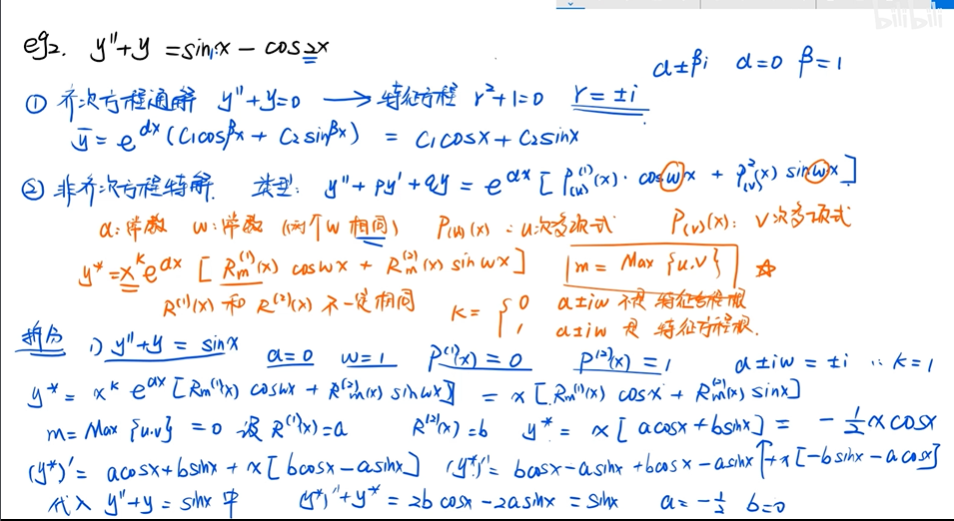 bilibili
eg2. y''+y=sinx-cos2x
α±βi α=0 β=1
① 齐次方程通解 y''+y=0 → 特征方程 r²+1=0 r=±i
ȳ=e^{αx}(C₁cosβx+C₂sinβx) = C₁cosx+C₂sinx
② 非齐次方程特解. 类型: y''+py'+qy=e^{αx}[P₍ᵤ₎⁽¹⁾(x)·cosωx+P₍ᵥ₎²(x) sinωx]
α:常数 ω:常数 (两个ω相同) P₍ᵤ₎(x):u次多项式 P₍ᵥ₎(x): v次多项式
y*=x^k e^{αx} [R_m⁽¹⁾(x) cosωx+R_m⁽²⁾(x) sinωx] m=Max{u.v} ☆
R⁽¹⁾(x) 和 R⁽²⁾(x) 不一定相同 K={0 α±iω 不是 特征方程根
1 α±iω 是 特征方程根.
拆分 1) y''+y=sinx α=0 ω=1 P⁽¹⁾(x)=0 P⁽²⁾(x)=1 α±iω=±i ∴ K=1
y*=x^k e^{αx}[R_m⁽¹⁾(x) cosωx+R_m⁽²⁾(x) sinωx] =x[R_m⁽¹⁾(x) cosx+R_m⁽²⁾(x) sinx]
m=Max{u.v}=0 设R⁽¹⁾(x)=a R⁽²⁾(x)=b y*=x[acosx+bsinx]=-1/2 xcosx
(y*)'=acosx+bsinx+x[bcosx-asinx] (y*)''=bcosx-asinx+bcosx-asinx+x[-bsinx-acosx]
代入 y''+y=sinx中 (y*)''+y*=2bcosx-2asinx=sinx a=-1/2 b=0